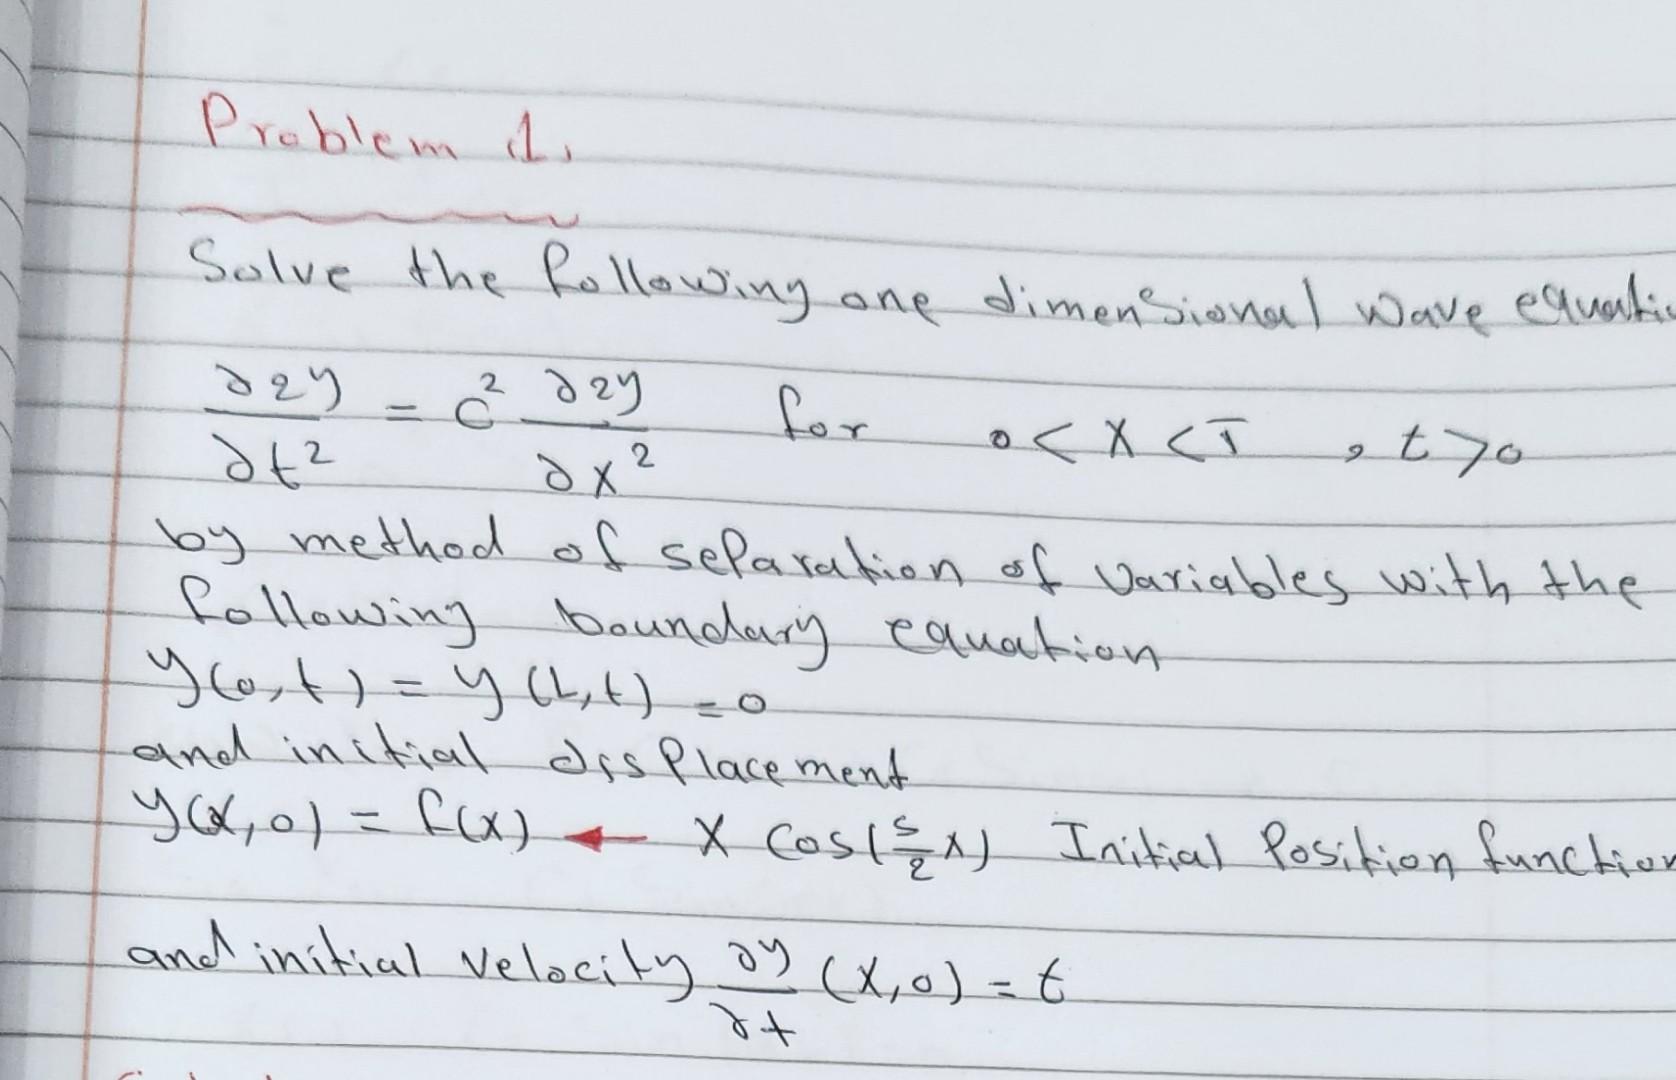 Problem 1.
Solve the following one dimensional wave equatio
∂2y/∂t² = c² ∂2y/∂x² for 0<x<T , t>0
by method of separation of variables with the
following boundary equation
y(0,t) = y(L,t) = 0
and initial displacement
y(x,0) = f(x) ← x cos(5/2 x) Initial Position function
and initial velocity ∂y/∂t (x,0) = t